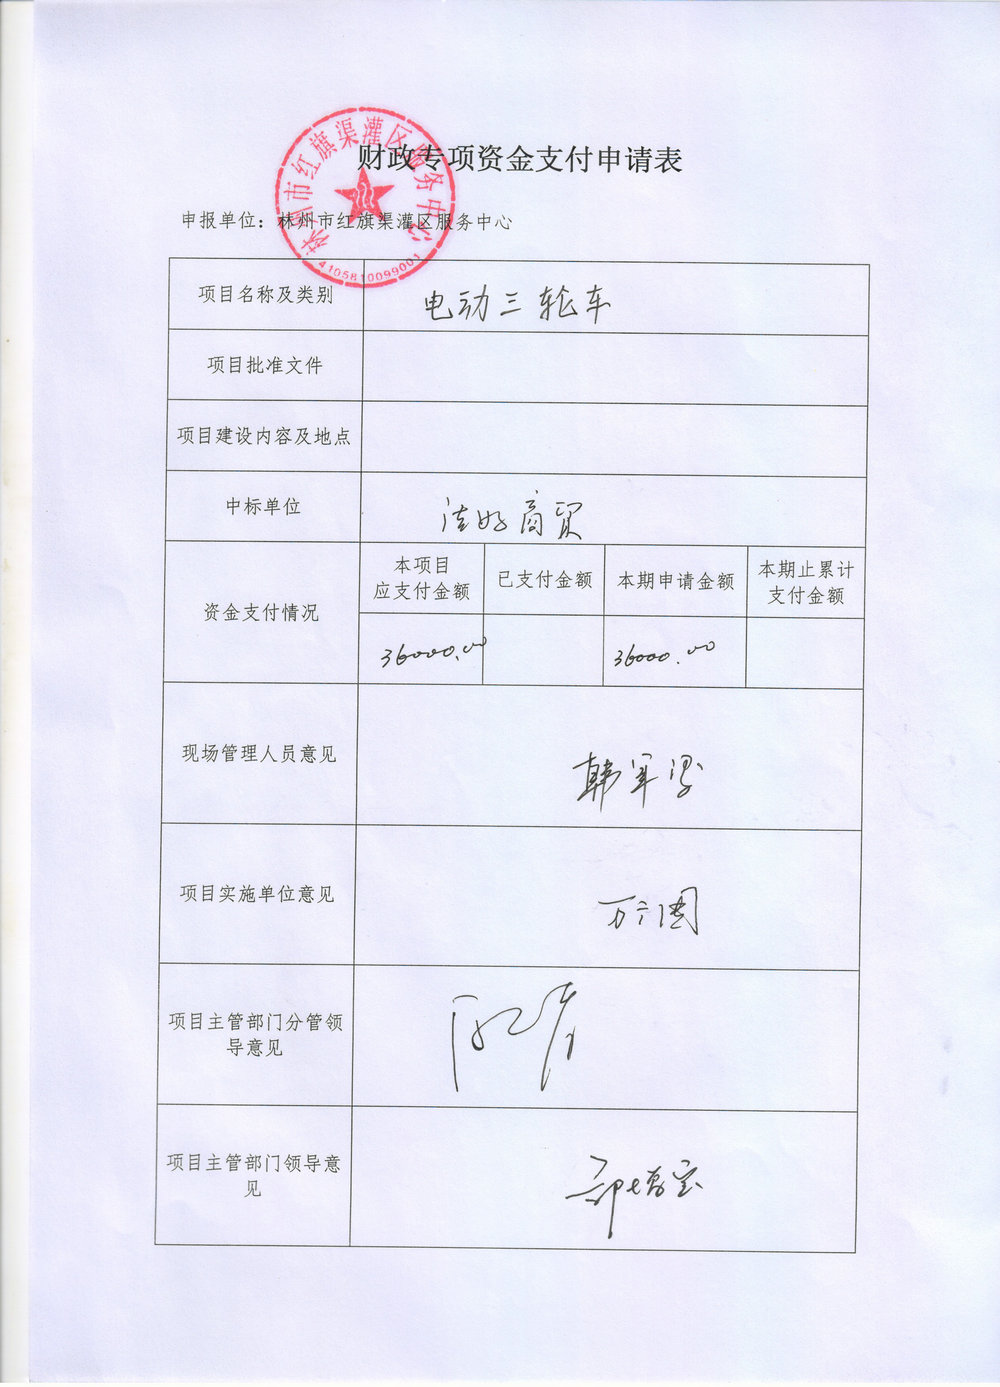 财政专项资金支付申请表
林州市红旗渠灌区服务中心
4105810099001
申报单位：林州市红旗渠灌区服务中心
项目名称及类别
电动三轮车
项目批准文件
项目建设内容及地点
中标单位
商贸
资金支付情况
本项目
应支付金额
已支付金额
本期申请金额
本期止累计
支付金额
36000.00
36000.00
现场管理人员意见
韩军
项目实施单位意见
项目主管部门分管领
导意见
项目主管部门领导意
见